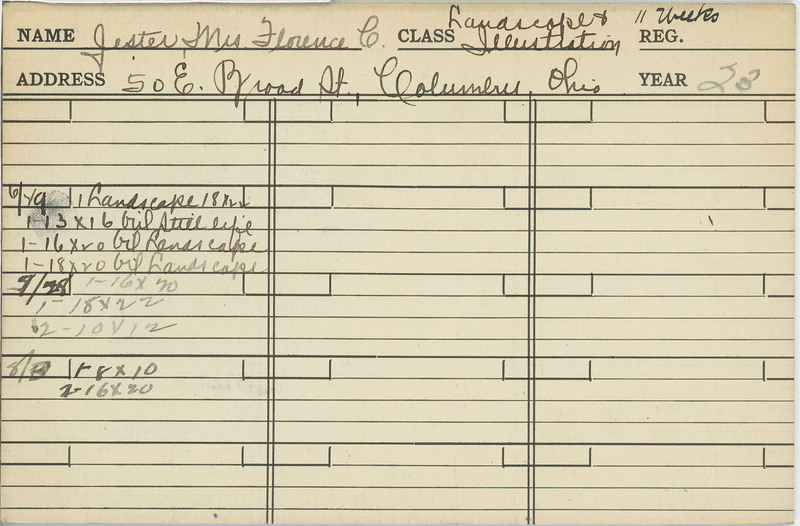 NAME Jester, Mrs Florence C. CLASS Landscape & Illustration 11 Weeks REG.
ADDRESS 50 E. Broad St., Columbus, Ohio YEAR 23
6/19 1 Landscape 18x22
1-13 x 16 Oil Still life
1-16 x 20 Oil Landscape
1-18x20 Oil Landscape
1-16 x 20
1-18 x 22
2-10 x 12
1-8 x 10
2-16x20